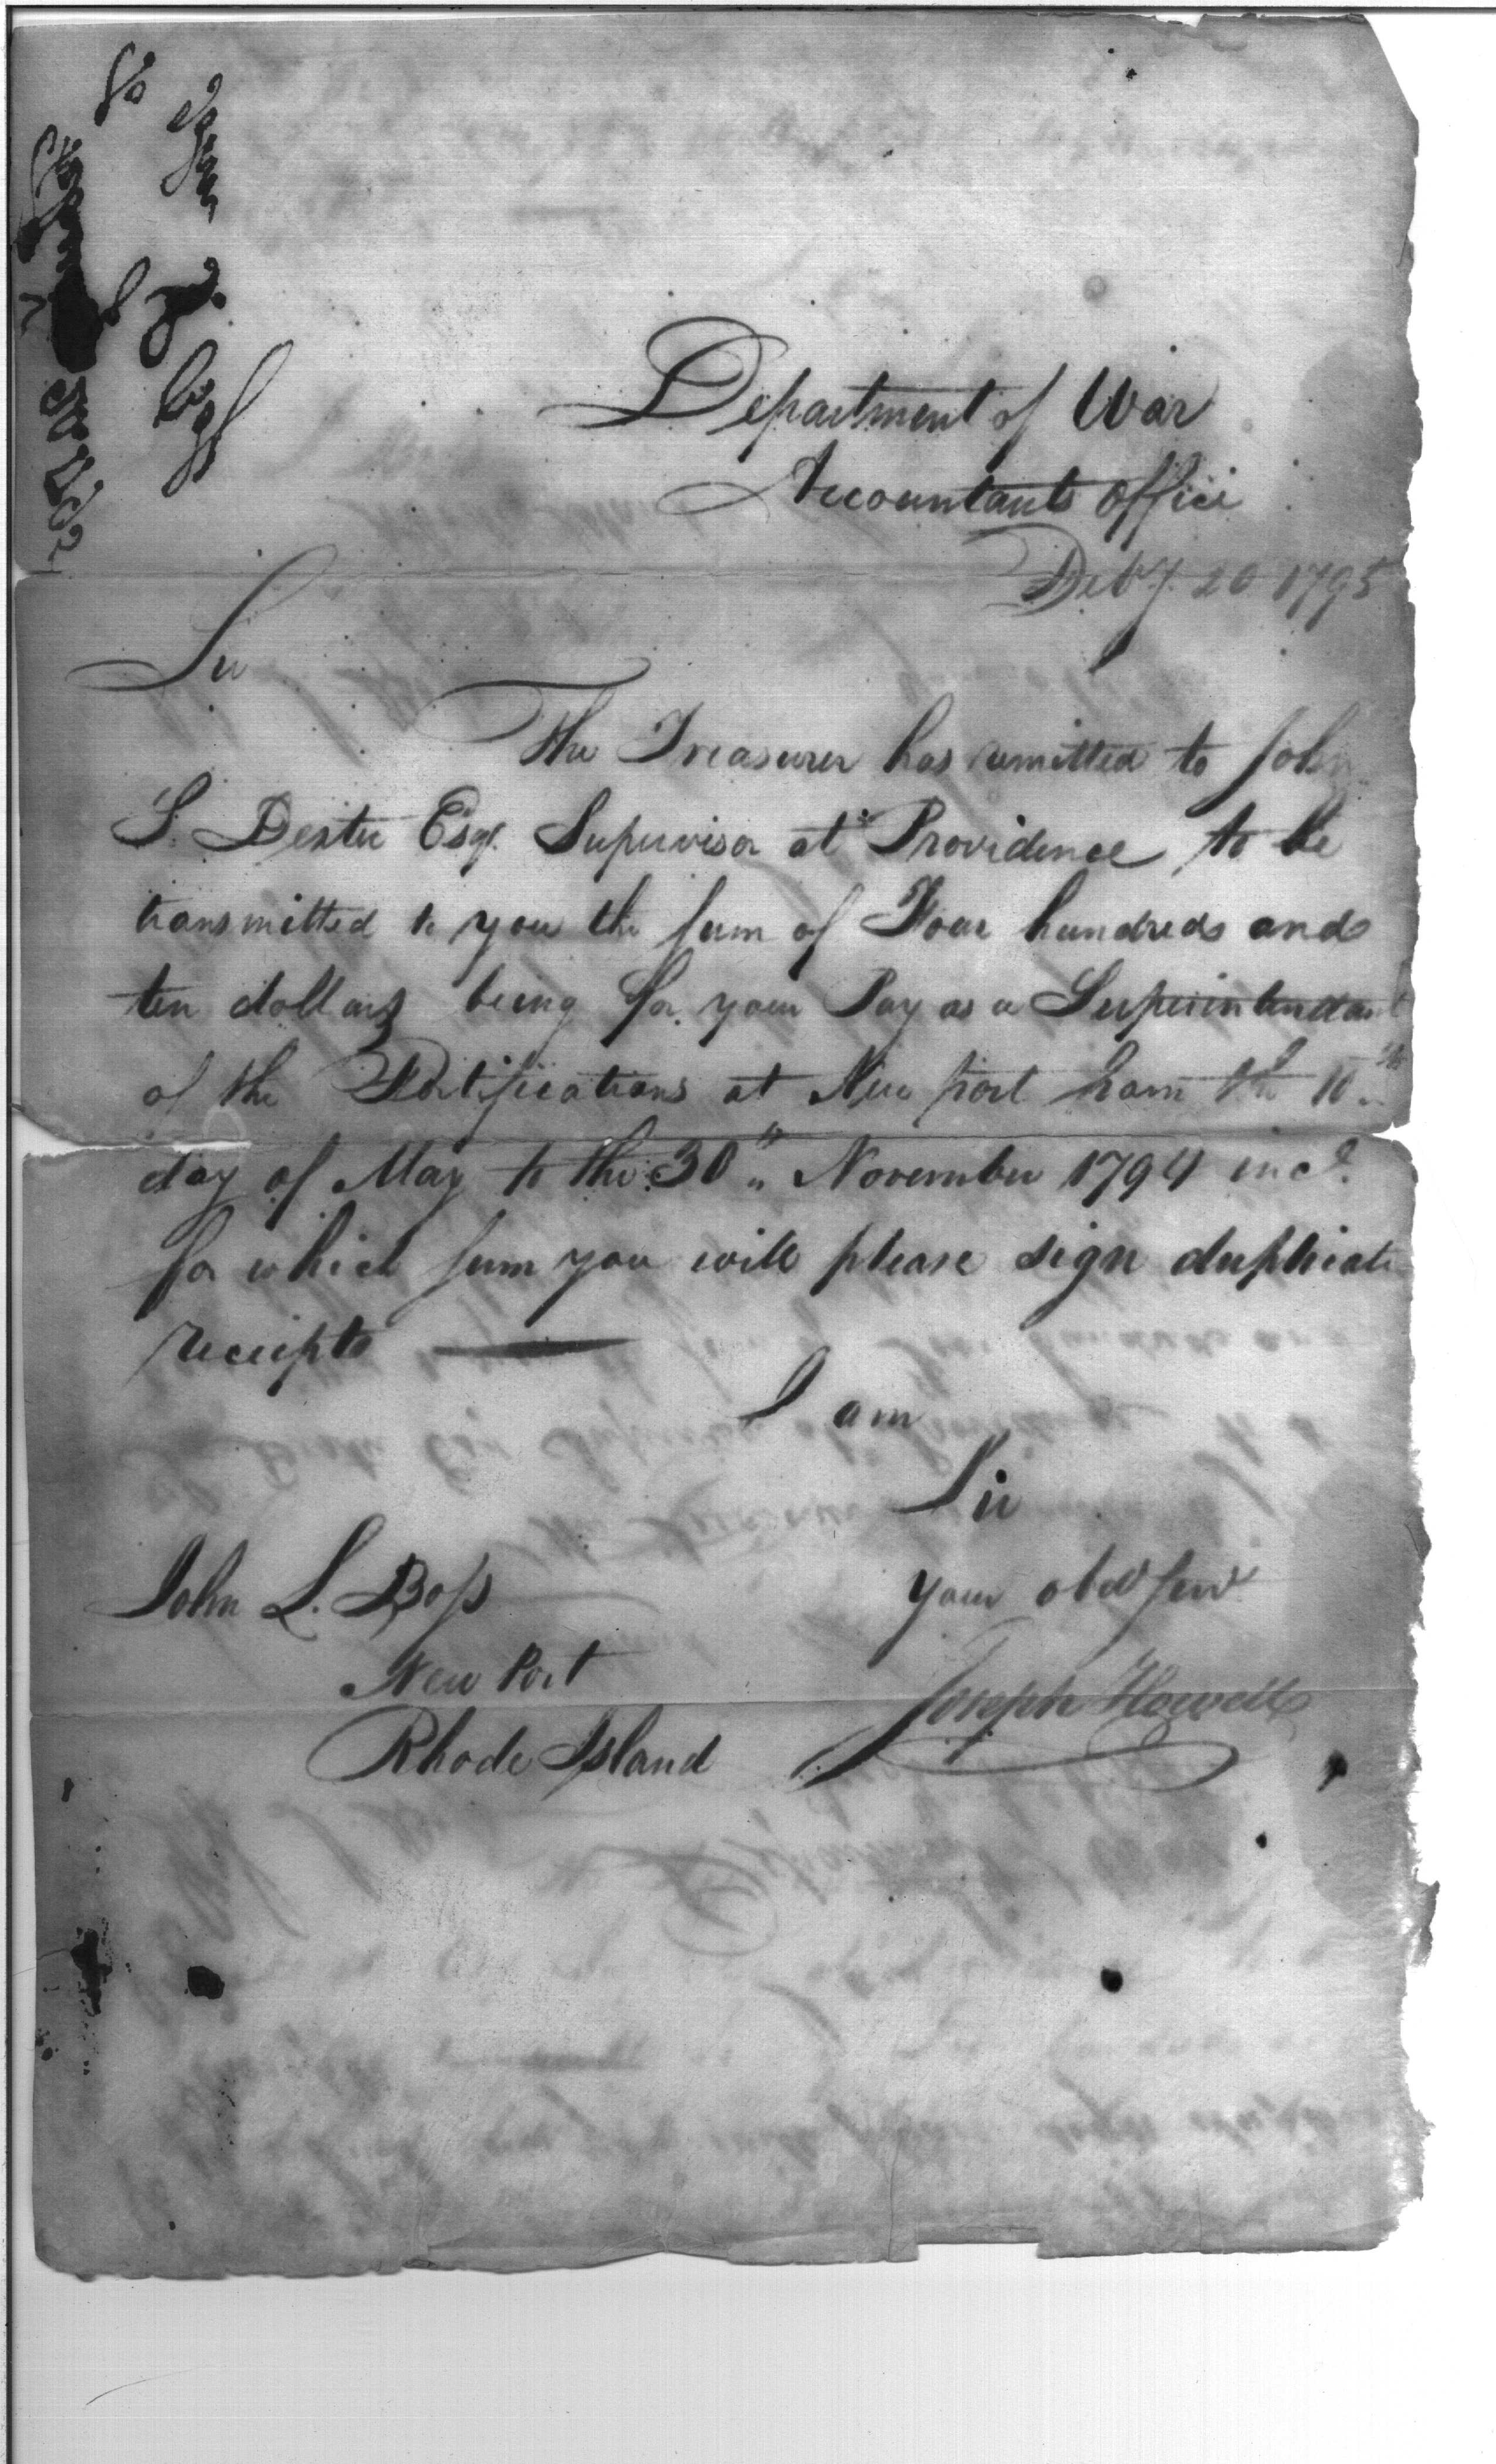 Department of War
Accountants office
Feby. 20 1795
Sir
The Treasurer has remitted to John
S. Dexter Esqr. Supervisor at Providence to be
transmitted to you the sum of Four hundred and
ten dollars being for your Pay as a Superintendant
of the Fortifications at New port from the 10th
day of May to the 30th November 1794 incl.
for which sum you will please sign duplicate
receipts
I am
Sir
your obed serv
Joseph Howell
John L. Boss
New Port
Rhode Island